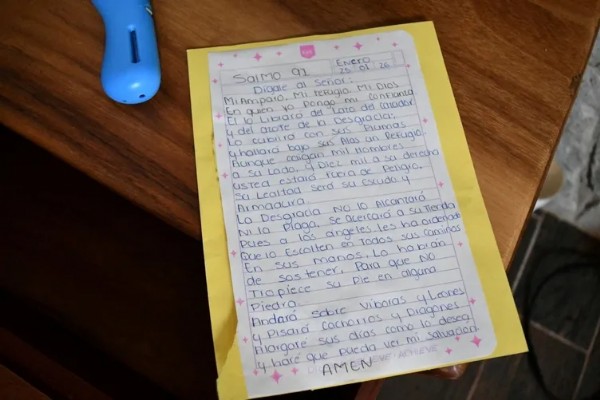 Salmo 91
Enero
25 01 26
Digale al Señor:
Mi Amparo, Mi refugio, Mi Dios
En quien yo Pongo mi confianza
El lo Librará del Lazo del cazador
y del azote de la Desgracias;
Lo cubrirá con sus Plumas
y hallará bajo sus Alas un Refugio
Aunque caigan mil Hombres
a su Lado y Diez mil a su derecha
usted estará fuera de Peligro.
Su Lealtad será su escudo y
Armadura.
La Desgracia No lo Alcanzará
Ni la Plaga, se Acercará a su Tienda
Pues a los ángeles les ha ordenado
Que lo Escolten en Todos sus caminos
En sus manos, Lo habrán
de sostener, Para que NO
Tropiece su Pie en alguna
Piedra.
Andará sobre Víboras y Leones
y Pisará Cachorros y Dragones
Alargaré sus días como lo desea
y haré que Pueda ver mi salvación
AMEN